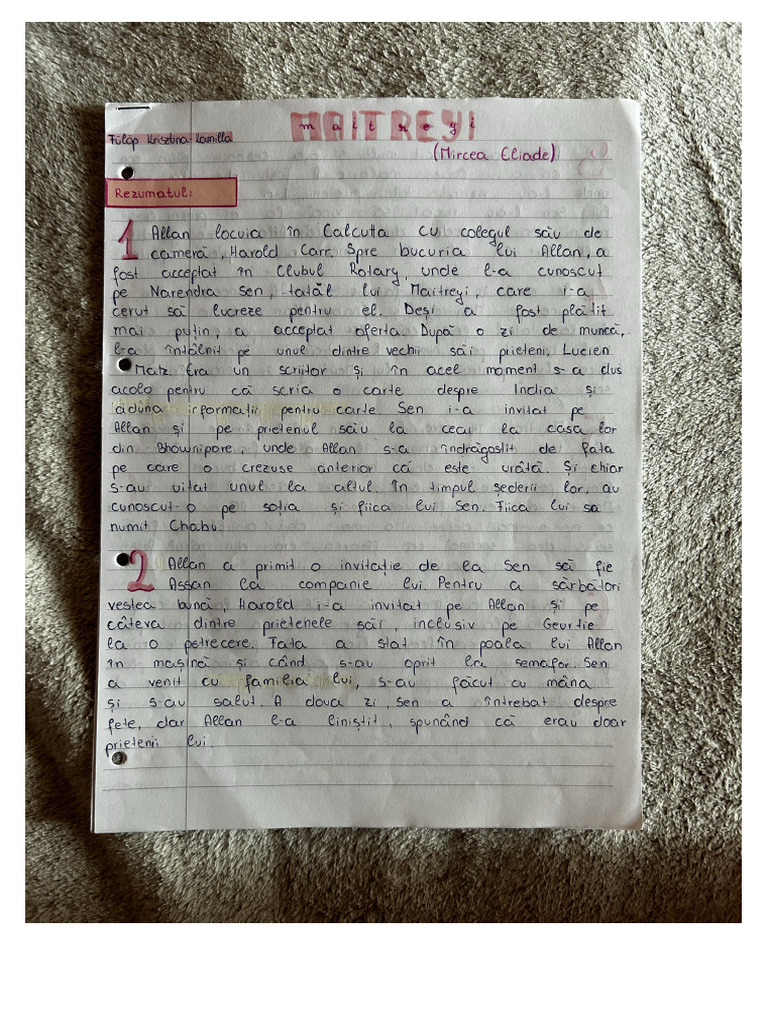 MAITREYI
maitreyi
Fülöp Krisztina-Kamilla
(Mircea Eliade)
Rezumatul:
1 Allan locuia în Calcutta cu colegul său de
cameră, Harold Carr. Spre bucuria lui Allan, a
fost acceptat în Clubul Rotary, unde l-a cunoscut
pe Narendra Sen, tatăl lui Maitreyi, care i-a
cerut să lucreze pentru el. Deși a fost plătit
mai puțin, a acceptat oferta. După o zi de muncă,
l-a întâlnit pe unul dintre vechii săi prieteni, Lucien
Matz. Era un scriitor și în acel moment s-a dus
acolo pentru că scria o carte despre India și
aduna informații pentru carte. Sen i-a invitat pe
Allan și pe prietenul său la ceai la casa lor
din Bhownipore, unde Allan s-a îndrăgostit de fata
pe care o crezuse anterior că este urâtă. Și chiar
s-au uitat unul la altul. În timpul șederii lor, au
cunoscut-o pe soția și fiica lui Sen. Fiica lui sa
numit Chabu.
2 Allan a primit o invitație de la Sen să fie
Assan la companie lui. Pentru a sărbători
vestea bună, Harold i-a invitat pe Allan și pe
câteva dintre prietenele săi, inclusiv pe Geurtie
la o petrecere. Fata a stat în poala lui Allan
în mașină și când s-au oprit la semafor. Sen
a venit cu familia lui, s-au făcut cu mâna
și s-au salut. A doua zi, Sen a întrebat despre
fete, dar Allan l-a liniștit, spunând că erau doar
prietenii lui.